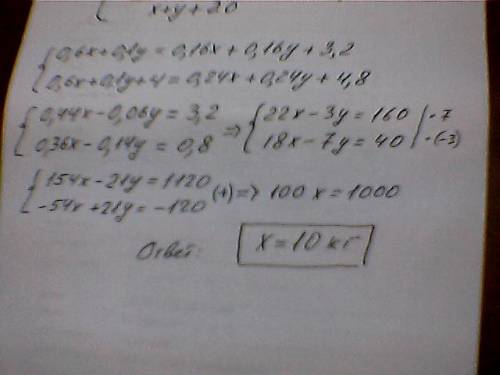 x+y+20
0,6x+0,1y = 0,16x+0,16y+3,2
0,6x+0,1y+4 = 0,24x+0,24y+4,8
0,44x-0,06y = 3,2
0,36x-0,14y = 0,8 => {22x-3y = 160 | ·7
18x-7y = 40 | ·(-3)
154x-21y = 1120
-54x+21y = -120 (+) => 100x = 1000
Ответ: x = 10 кг